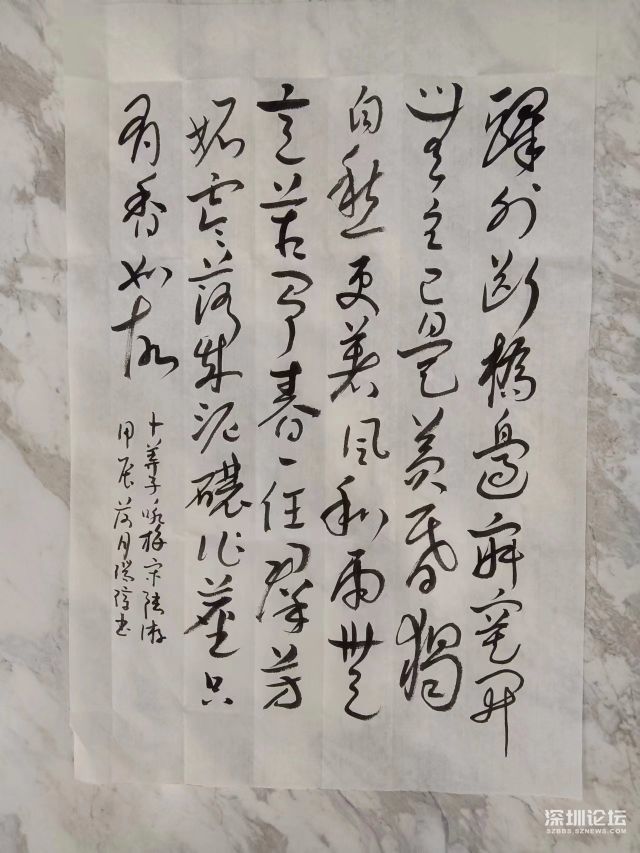 驛外斷橋邊寂寞開
無主已是黃昏獨
自愁更著風和雨無
意苦爭春一任群芳
妒零落成泥碾作塵只
有香如故
卜算子咏梅宋陸游
甲辰荷月书
深圳论坛
SZBBS.SZNEWS.COM